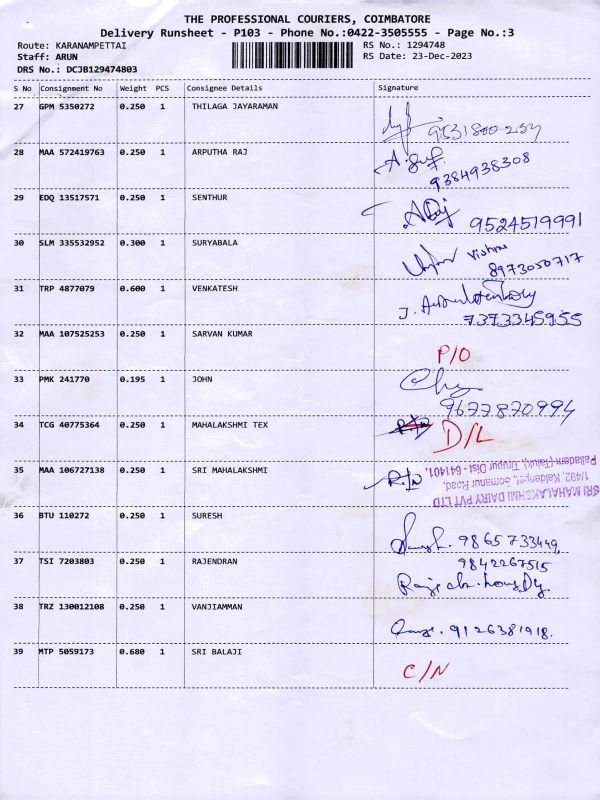 THE PROFESSIONAL COURIERS, COIMBATORE
Delivery Runsheet - P103 - Phone No.:0422-3505555 - Page No.:3
Route: KARANAMPETTAI RS No.: 1294748
Staff: ARUN RS Date: 23-Dec-2023
DRS No.: DCJB129474803
S No Consignment No Weight PCS Consignee Details Signature
27 GPM 5350272 0.250 1 THILAGA JAYARAMAN
28 MAA 572419763 0.250 1 ARPUTHA RAJ
9384938308
29 EDQ 13517571 0.250 1 SENTHUR
9524519991
30 SLM 335532952 0.300 1 SURYABALA
Vishnu
8973050717
31 TRP 4877079 0.600 1 VENKATESH
7373345955
32 MAA 107525253 0.250 1 SARVAN KUMAR
P/O
33 PMK 241770 0.195 1 JOHN
9677870994
34 TCG 40775364 0.250 1 MAHALAKSHMI TEX
D/L
35 MAA 106727138 0.250 1 SRI MAHALAKSHMI
SRI MAHALAKSHMI DAIRY PVT LTD
1/492, Kalangal, Somanur Road,
Palladam (Taluk), Tirupur Dist - 641401.
36 BTU 110272 0.250 1 SURESH
9865733449
37 TSI 7203803 0.250 1 RAJENDRAN
9842267515
38 TRZ 130012108 0.250 1 VANJIAMMAN
9126381918.
39 MTP 5059173 0.680 1 SRI BALAJI
C/N